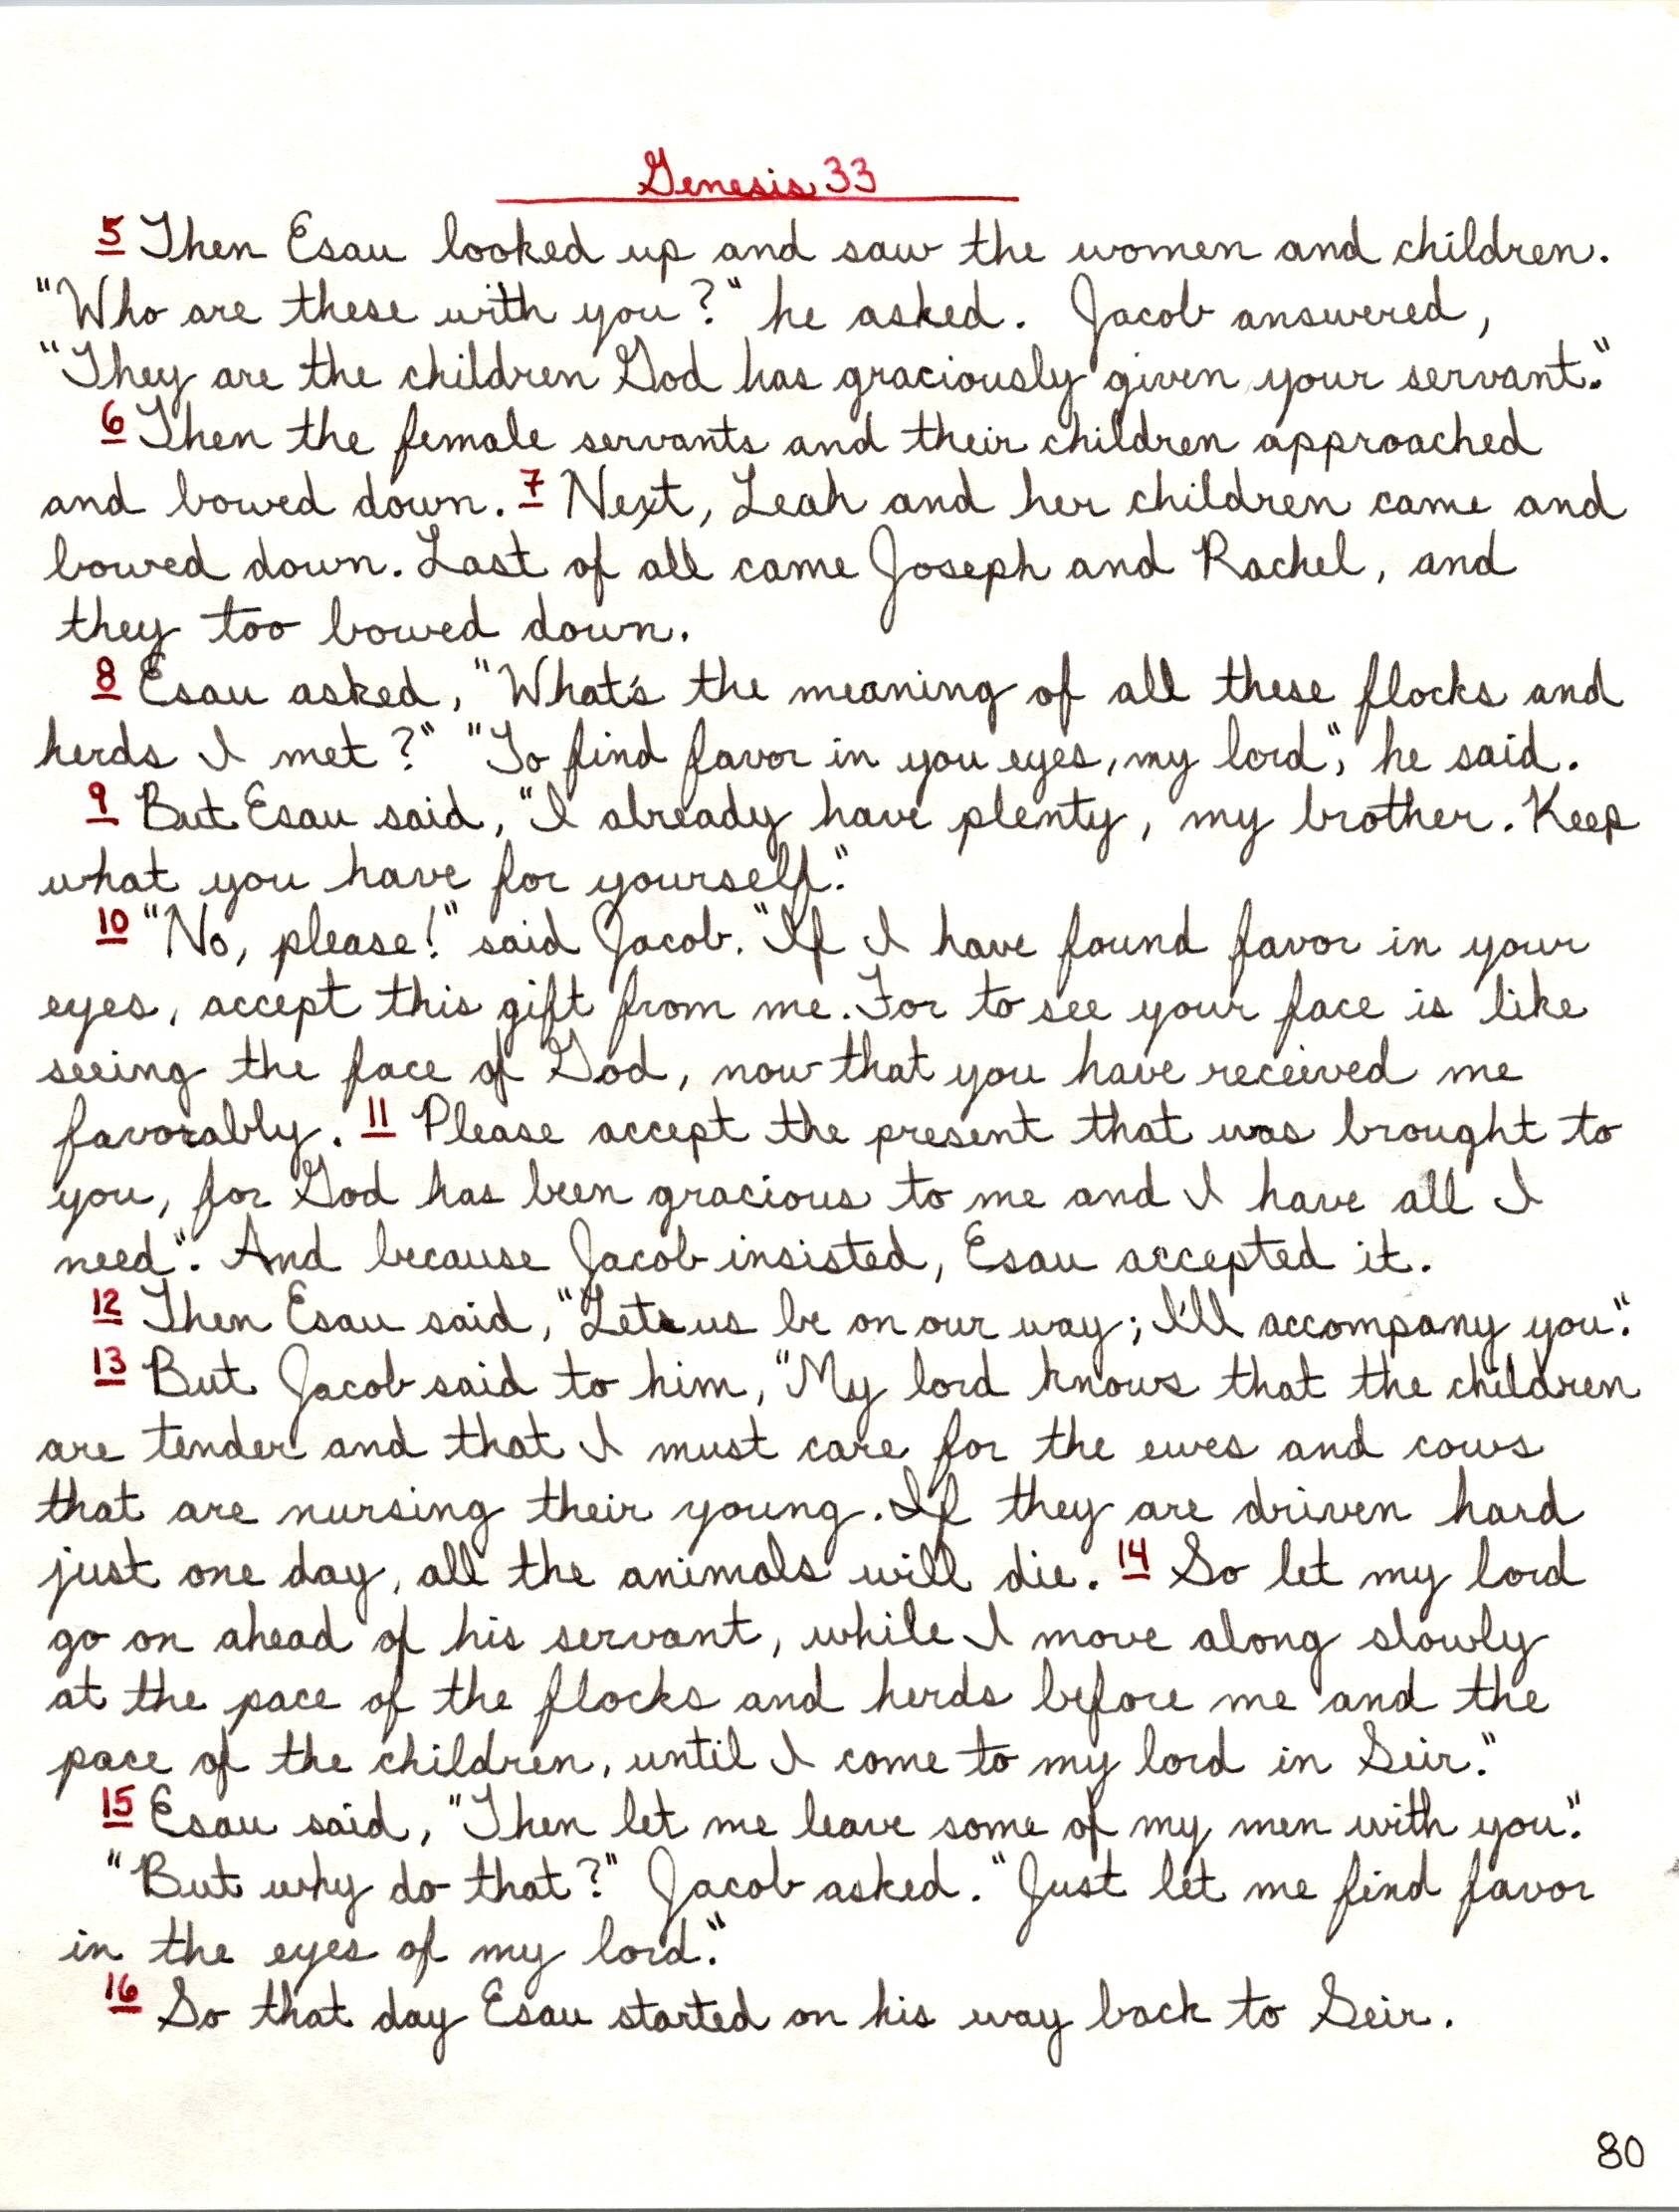 Genesis 33
5 Then Esau looked up and saw the women and children.
"Who are these with you?" he asked. Jacob answered,
"They are the children God has graciously given your servant."
6 Then the female servants and their children approached
and bowed down. 7 Next, Leah and her children came and
bowed down. Last of all came Joseph and Rachel, and
they too bowed down.
8 Esau asked, "What's the meaning of all these flocks and
herds I met?" "To find favor in you eyes, my lord", he said.
9 But Esau said, "I already have plenty, my brother. Keep
what you have for yourself."
10 "No, please!" said Jacob. "If I have found favor in your
eyes, accept this gift from me. For to see your face is like
seeing the face of God, now that you have received me
favorably. 11 Please accept the present that was brought to
you, for God has been gracious to me and I have all I
need". And because Jacob insisted, Esau accepted it.
12 Then Esau said, "Let us be on our way; I'll accompany you."
13 But Jacob said to him, "My lord knows that the children
are tender and that I must care for the ewes and cows
that are nursing their young. If they are driven hard
just one day, all the animals will die. 14 So let my lord
go on ahead of his servant, while I move along slowly
at the pace of the flocks and herds before me and the
pace of the children, until I come to my lord in Seir."
15 Esau said, "Then let me leave some of my men with you."
"But why do that?" Jacob asked. "Just let me find favor
in the eyes of my lord."
16 So that day Esau started on his way back to Seir.
80